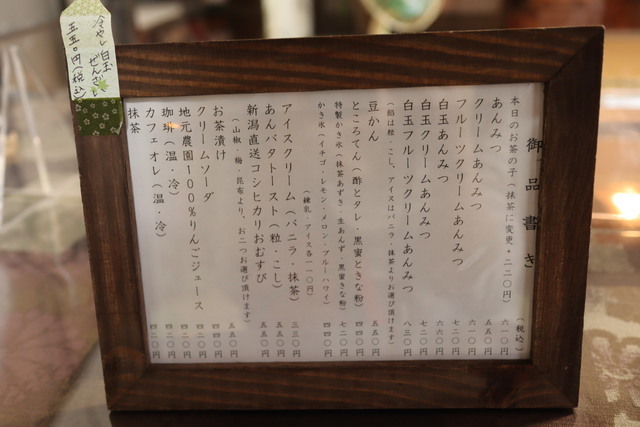 御品書き
(税込)
本日のお茶の子(抹茶に変更・二二〇円) 六一〇円
あんみつ 五五〇円
クリームあんみつ 六一〇円
フルーツクリームあんみつ 七二〇円
白玉あんみつ 六六〇円
白玉クリームあんみつ 七二〇円
白玉フルーツクリームあんみつ 八三〇円
(餡は粒・こし、アイスはバニラ・抹茶よりお選び頂けます)
豆かん 五五〇円
ところてん(酢とタレ・黒蜜ときな粉) 四四〇円
特製かき氷(抹茶あずき・生あんず・黒蜜きな粉) 七二〇円
かき氷(イチゴ・レモン・メロン・ブルーハワイ) 四四〇円
(練乳・アイス各一一〇円)
アイスクリーム(バニラ・抹茶) 三三〇円
あんバタトースト(粒・こし) 五五〇円
新潟直送コシヒカリおむすび 五五〇円
(山椒・梅・昆布より、お二つお選び頂けます)
お茶漬け 五五〇円
クリームソーダ
地元農園100%りんごジュース
珈琲(温・冷)
カフェオレ(温・冷)
抹茶
冷やし白玉ぜんざい
五五〇円(税込)